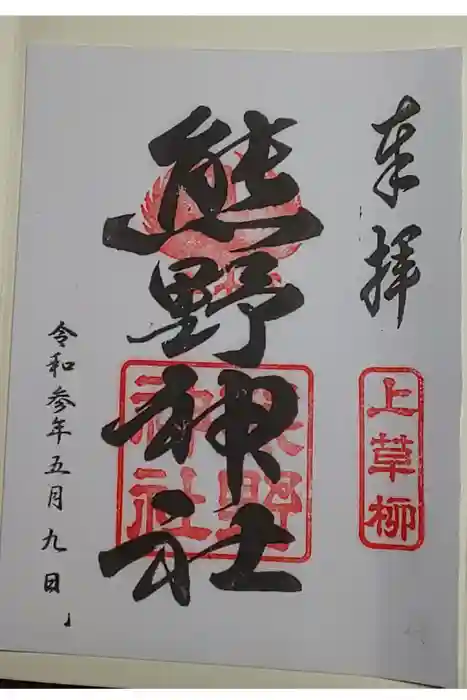 奉拝
上草柳
熊野神社
熊野神社
令和参年五月九日